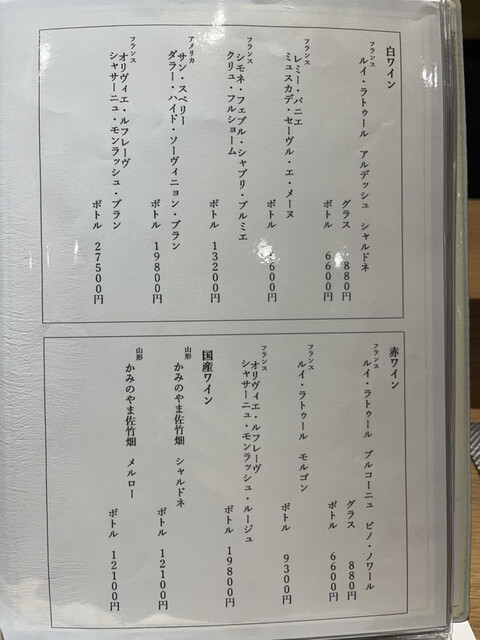 白ワイン
フランス
ルイ・ラトゥール アルデッシュ シャルドネ
グラス 880円
ボトル 6600円
フランス
レミー・パニエ
ミュスカデ・セーヴル・エ・メーヌ
ボトル 6600円
フランス
シモネ・フェブル・シャブリ・プルミエ
クリュ・フルショーム
ボトル 13200円
アメリカ
サン・スペリー
ダラー・ハイド・ソーヴィニョン・ブラン
ボトル 19800円
フランス
オリヴィエ・ルフレーヴ
シャサーニュ・モンラッシュ・ブラン
ボトル 27500円
赤ワイン
フランス
ルイ・ラトゥール ブルコーニュ ピノ・ノワール
グラス 880円
ボトル 6600円
フランス
ルイ・ラトゥール モルゴン
ボトル 9300円
フランス
オリヴィエ・ルフレーヴ
シャサーニュ・モンラッシュ・ルージュ
ボトル 19800円
国産ワイン
山形
かみのやま佐竹畑 シャルドネ
ボトル 12100円
山形
かみのやま佐竹畑 メルロー
ボトル 12100円